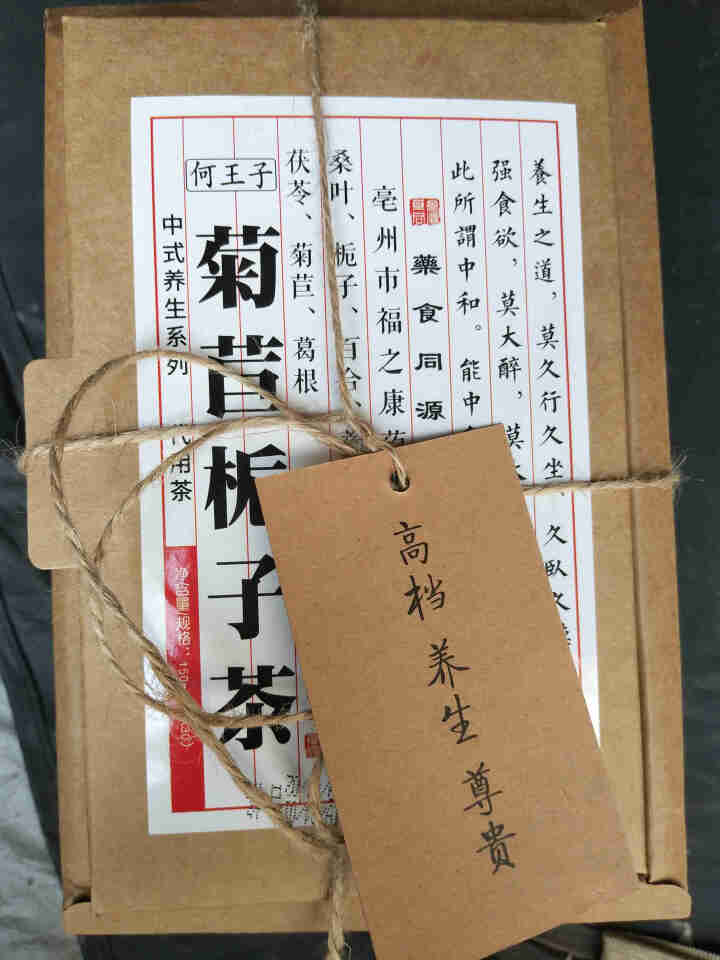 養生之道，莫久行久坐、久臥久
强食欲，莫大醉，莫大
此所謂中和。能中
藥食同源
亳州市福之康药
桑叶、栀子、百合、
茯苓、菊苣、葛根
何王子
菊苣栀子茶
中式养生系列 代用茶
净含量/规格：150
高档 养生 尊贵